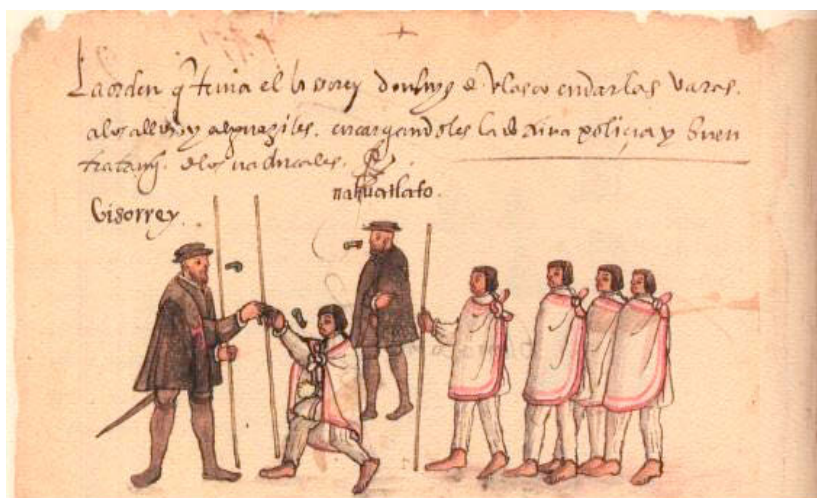 La orden q̃ tenia el bisorey don luys de Velasco en dar las varas.
alos alldes y alguaziles. encargandoles la doctrina poliçia y buen
tratamjo. delos naturales.
nahuatlato.
Visorrey.